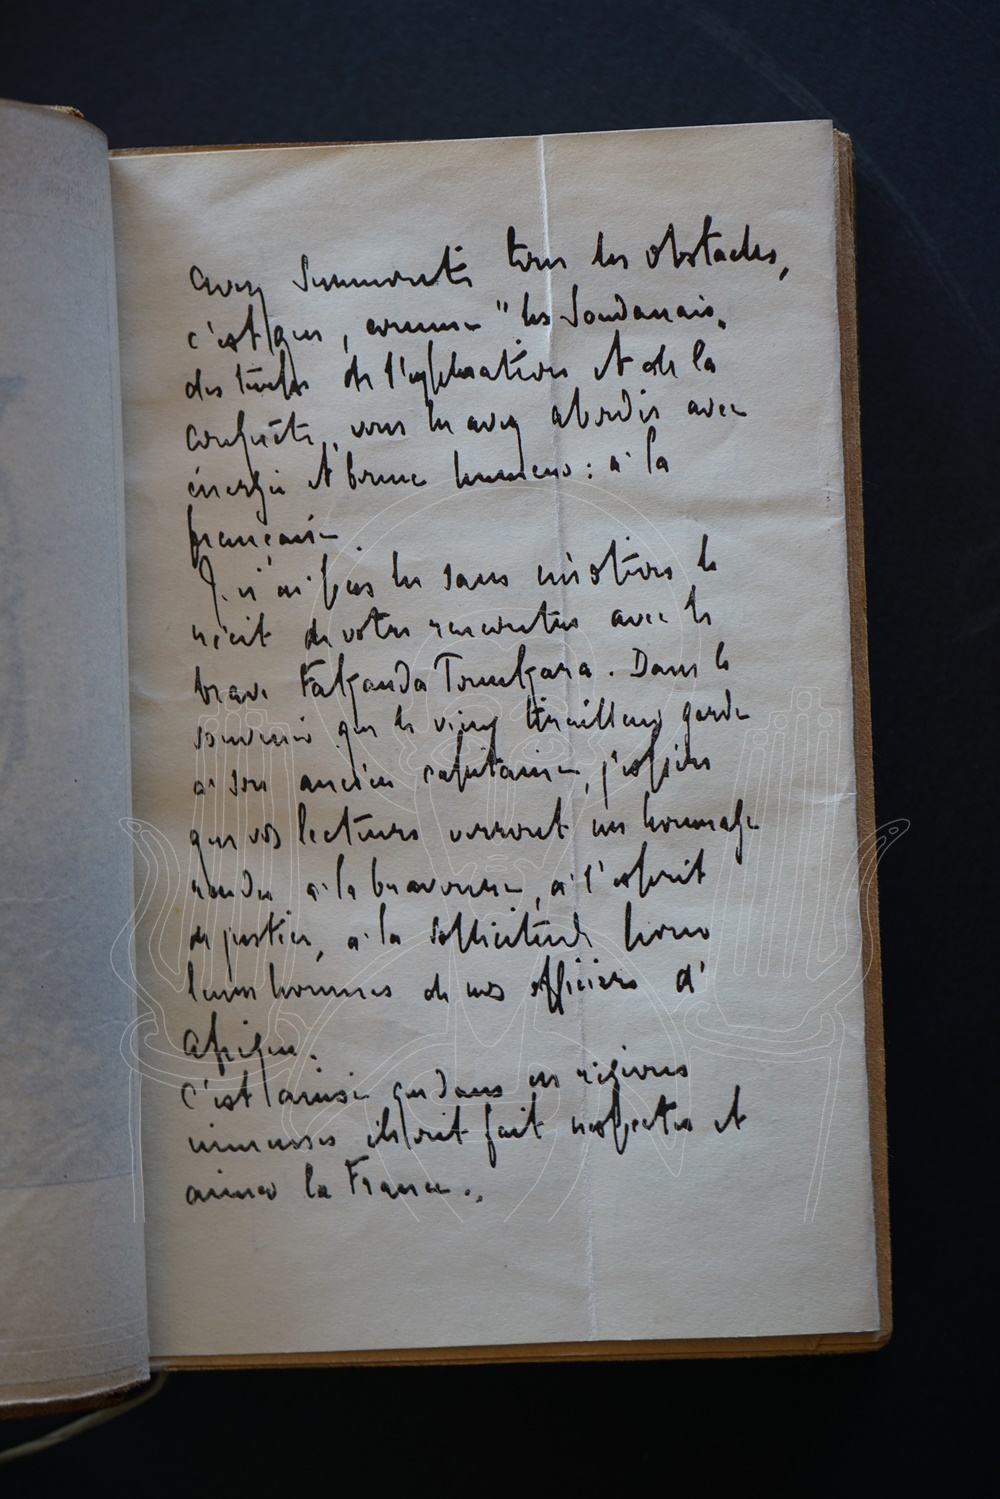 avez surmonté tous les obstacles,
c'est que, comme "les Soudanais"
des temps de l'exploration et de la
conquête, vous les avez abordés avec
énergie et bonne humeur : à la
française
Je n'ai pas lu sans émotion le
récit de votre rencontre avec le
brave Fakanda Tounkara. Dans le
souvenir que le vieux tirailleur garde
à son ancien capitaine, j'espère
que vos lecteurs verront un hommage
rendu à la bravoure, à l'esprit
de justice, à la sollicitude pour
leurs hommes de nos officiers d'
Afrique.
C'est ainsi que dans ces régions
immenses ils ont fait respecter et
aimer la France..